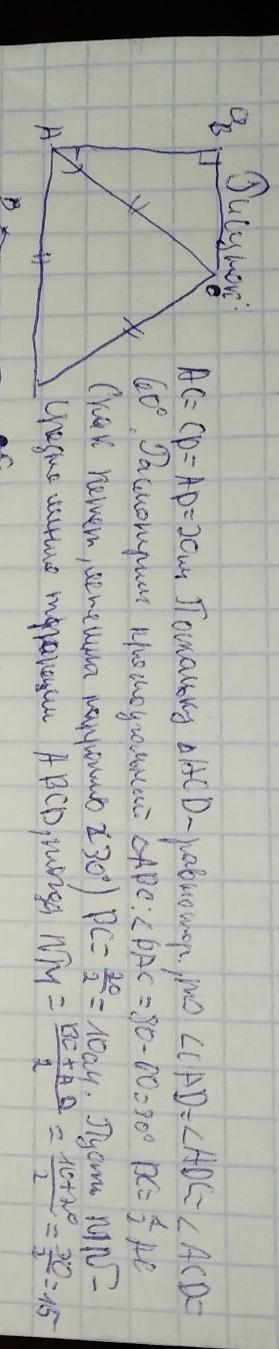 Рисунок:
B
C
A
AC = CD = AD = 20см Поскольку △ACD – равностор, то ∠CAD = ∠ADC = ∠ACD =
60°. Расмотрим прямоугольний △ABC: ∠BAC = 90 - 60 = 30° BC = 1/2 AC
(как катет, лежащий напротив ∠30°) BC = 20/2 = 10см. Пусть MN –
средняя линия трапеции ABCD, тогда NM = BC + AD / 2 = 10 + 20 / 2 = 30/2 = 15
B
C